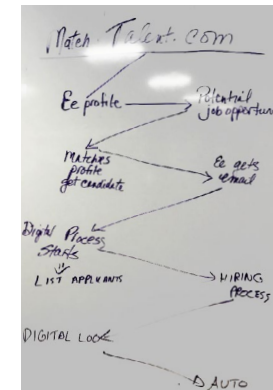 Match-Talent.com
Ee profile
Potential
job opportun
Matches
profile
get candidate
Ee gets
email
Digital Process
Starts
LIST APPLICANTS
HIRING
PROCESS
DIGITAL
AUTO